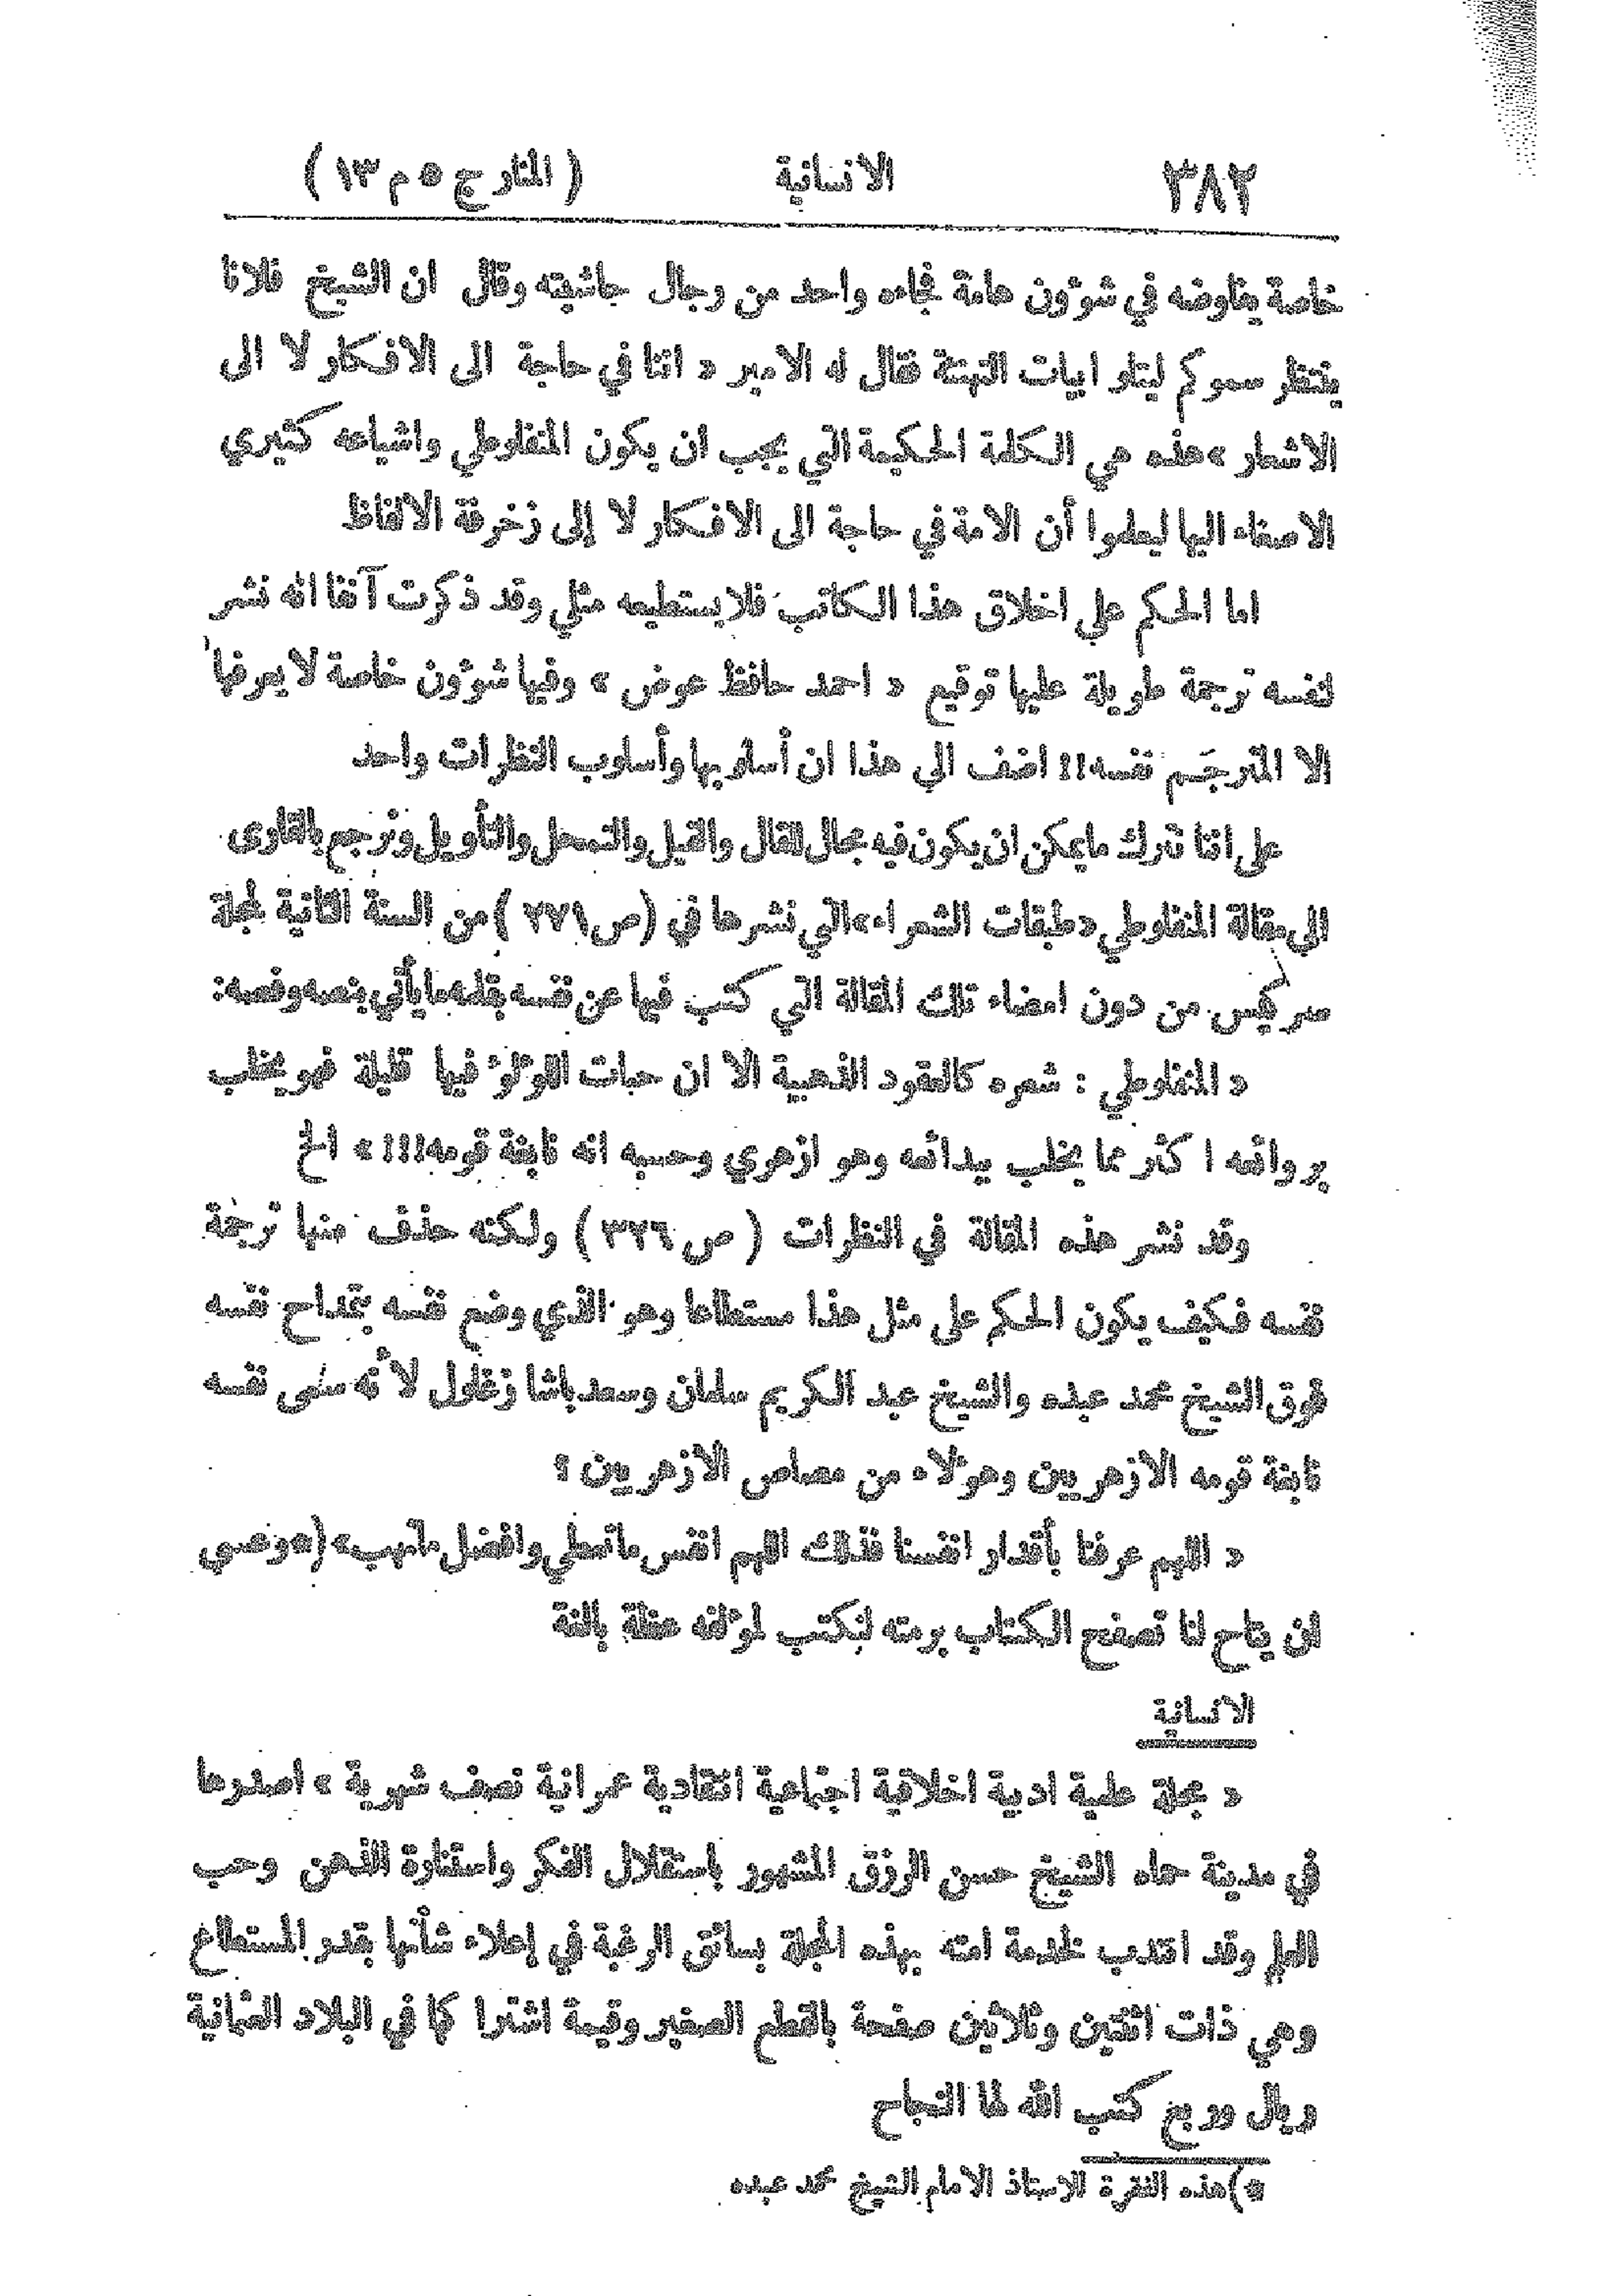 ٣٨٢ الانسانية ( المنار ج ٥ م ١٣ )
خاصة يفاوضه في شؤون هامة فجاءه واحد من رجال حاشيته وقال ان الشيخ فلانا
ينتظر سموكم ليتلو ابيات التهنئة فقال له الامير « اننا في حاجة الى الافكار لا الى
الاشعار » هذه هي الكلمة الحكيمة التي يجب ان يكون المنفلوطي واشياعه كثيري
الاصغاء اليها ليعلموا أن الامة في حاجة الى الافكار لا إلى زخرفة الالفاظ
اما الحكم على اخلاق هذا الكاتب فلا يستطيعه مثلي وقد ذكرت آنفا انه نشر
لنفسه ترجمة طويلة عليها توقيع « احمد حافظ عوض » وفيها شؤون خاصة لا يعرفها
الا المترجَم نفسه!! اضف الى هذا ان أسلوبها وأسلوب النظرات واحد
على اننا نترك ما يمكن ان يكون فيه مجال للقال والقيل والتمحل والتأويل ونرجع بالقارئ
الى مقالة المنفلوطي « طبقات الشعراء » التي نشرها في (ص ٢٧١ ) من السنة الثانية لمجلة
سركيس من دون امضاء تلك المقالة التي كتب فيها عن نفسه بقلمه ما يأتي بنصه وفصه :
« المنفلوطي : شعره كالعقود الذهبية الا ان حبات اللؤلؤ فيها قليلة فهو يخلب
بروائعه اكثر مما يخلب ببدائعه وهو ازهري وحسبه انه نابغة قومه!!! » الخ
وقد نشر هذه المقالة في النظرات ( ص ٣٢٦ ) ولكنه حذف منها ترجمة
نفسه فكيف يكون الحكم على مثل هذا مستطاعا وهو الذي وضع نفسه بتمداح نفسه
فوق الشيخ محمد عبده والشيخ عبد الكريم سلمان وسعد باشا زغلول لأنه سمى نفسه
نابغة قومه الازهريين وهؤلاء من مصاص الازهريين ؟
« اللهم عرفنا بأقدار انفسنا فذلك اللهم انفس ما تعطي وافضل ما تهب » (* وعسى
ان يتاح لنا تصفح الكتاب برمته لنكتب لمؤلفه عظة بالغة
الانسانية
« مجلة علمية ادبية اخلاقية اجتماعية انتقادية عمرانية نصف شهرية » اصدرها
في مدينة حماه الشيخ حسن الرزق المشهور باستقلال الفكر واستنارة الذهن وحب
العلم وقد انتدب لخدمة امته بهذه المجلة بسائق الرغبة في إعلاء شأنها بقدر المستطاع
وهي ذات اثنتين وثلاثين صفحة بالقطع الصغير وقيمة اشتراكها في البلاد العثمانية
ريال وربع كتب الله لها النجاح
*) هذه الفقرة للاستاذ الامام الشيخ محمد عبده